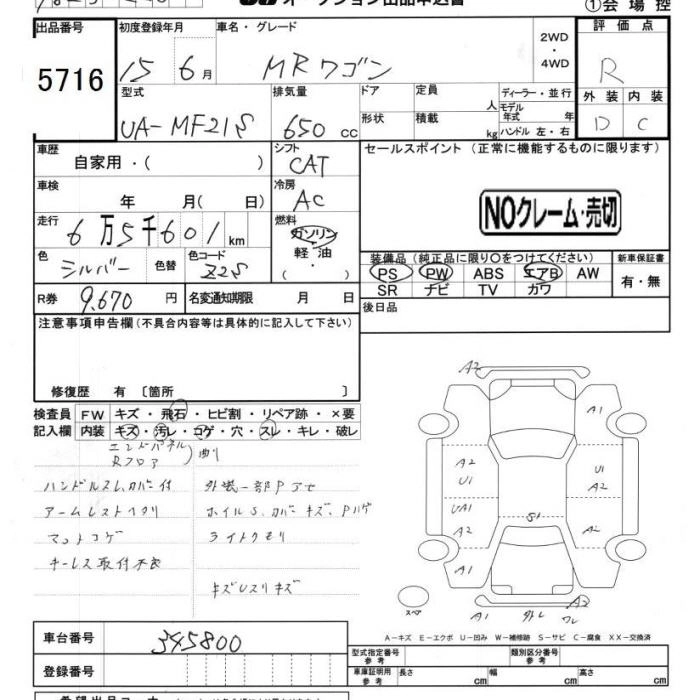 オークション出品申込書
①会場控
出品番号 初度登録年月 車名・グレード 2WD・4WD 評価点
5716 15 6月 MRワゴン R
型式 排気量 ドア 定員 人 ディーラー・並行 外装 内装
UA-MF21S 650 cc 形状 積載 kg モデル年式 年 ハンドル 左・右 D C
車歴 自家用・( ) シフト CAT セールスポイント (正常に機能するものに限ります)
車検 年 月(日) 冷房 AC
NOクレーム・売切
走行 6万5千601km 燃料 ガソリン 軽油 (・)
色 シルバー 色替 色コード Z2S 装備品 (純正品に限り○をつけてください) 新車保証書
PS PW ABS エアB AW 有・無
SR ナビ TV カワ
R券 9,670 円 名変通知期限 月 日 後日品
注意事項申告欄 (不具合内容等は具体的に記入して下さい)
修復歴 有 〔箇所 〕
検査員 FW キズ・飛石・ヒビ割・リペア跡・×要
記入欄 内装 キズ・汚レ・コゲ・穴・スレ・キレ・破レ
エンドパネル
Rフロア 曲り
ハンドルスレ、カバー付 外装一部Pアセ
アームレストヘタリ ホイルS、カバーキズ、Pハゲ
マットコゲ ライトクモリ
キーレス取付不良
キズレスリキズ
A2
A1
A2 U1
U1 A2
UA1
A2 S1 A2
A1
スペア A1 外レ A2 ワレ
A-キズ E-エクボ U-凹み W-補修跡 S-サビ C-腐食 XX-交換済
車台番号 345800
型式指定番号 参考 類別区分番号 参考
登録番号 車庫証明用 参考 長さ cm 幅 cm 高さ cm